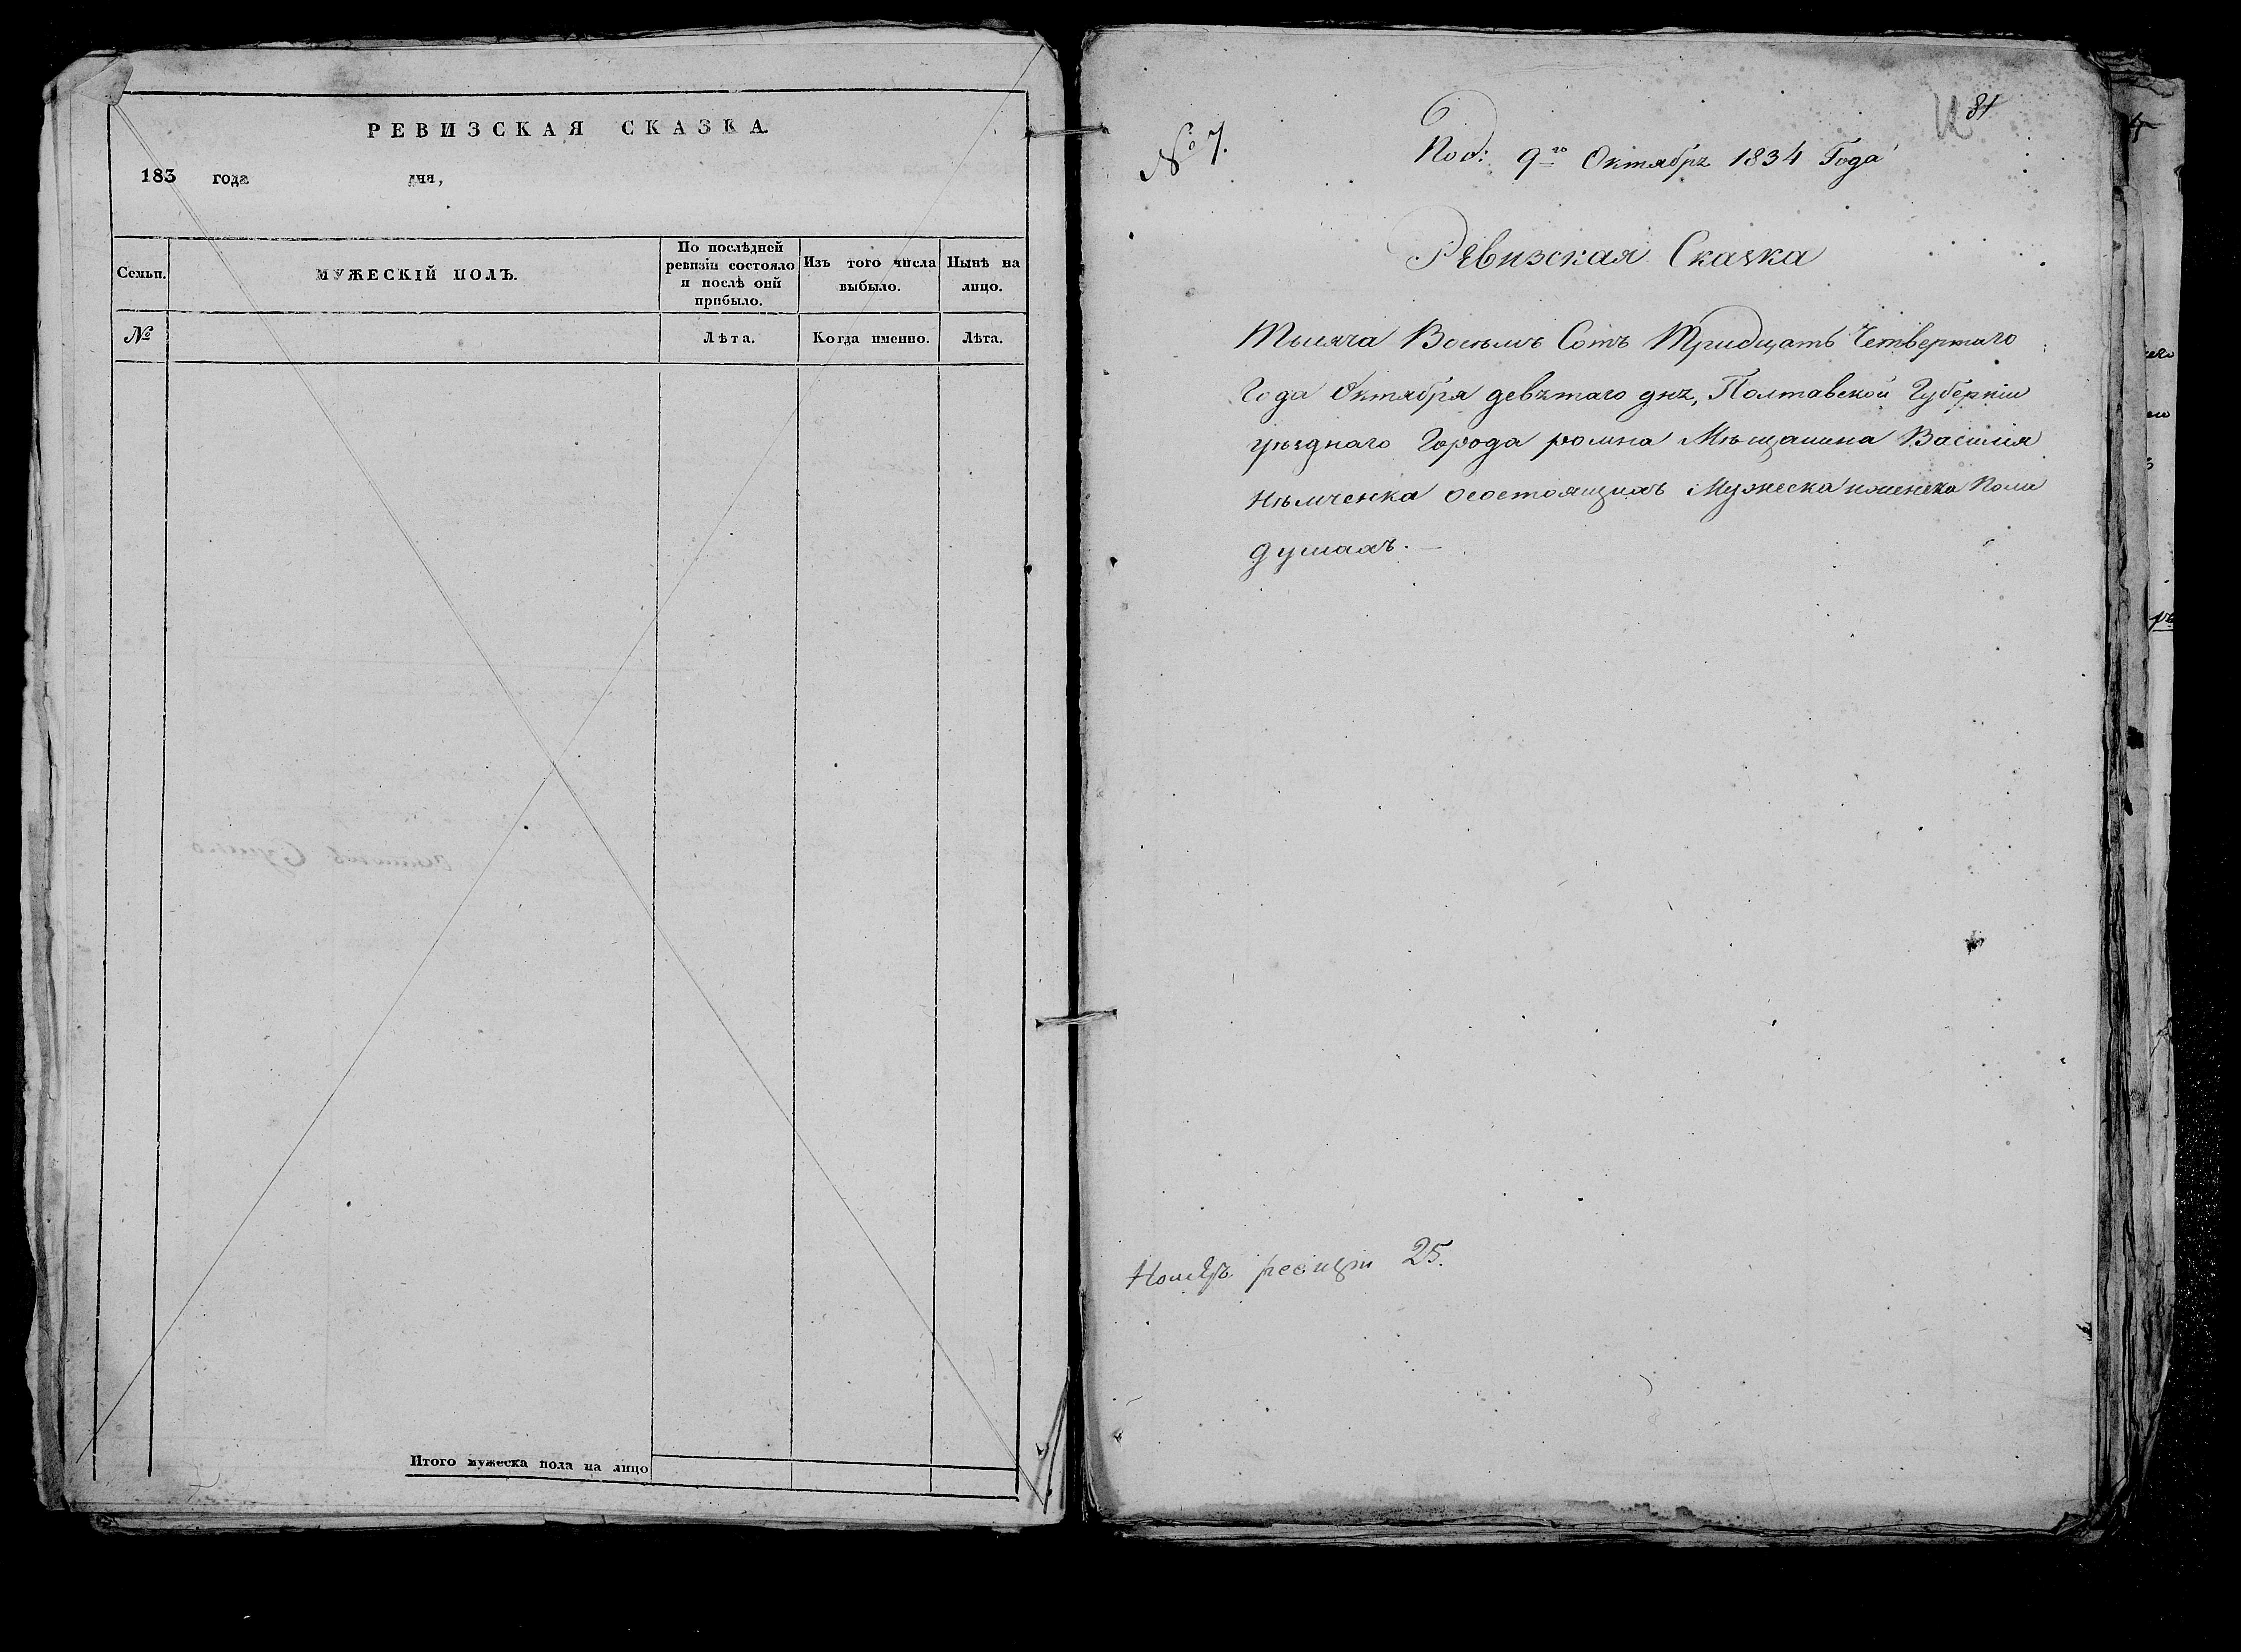 РЕВИЗСКАЯ СКАЗКА.
183 года дня,
Семьи.
МУЖЕСКІЙ ПОЛЪ.
По послѣдней
ревизіи состояло
и послѣ оной
прибыло.
Изъ того числа
выбыло.
Нынѣ на
лицо.
№
Лѣта.
Когда именно.
Лѣта.
Итого мужеска пола на лицо
81
№ 7.
Под: 9го Октября 1834 Года
Ревизская Сказка
Тысяча Восемь Сотъ Тридцать Четвертаго
Года Октября девятаго дня, Полтавской Губерніи
уѣзднаго Города ромна Мѣщанина Василія
Нѣмченка осостоящихъ Мужеска иженска Пола
душахъ.
ревизіи 25.